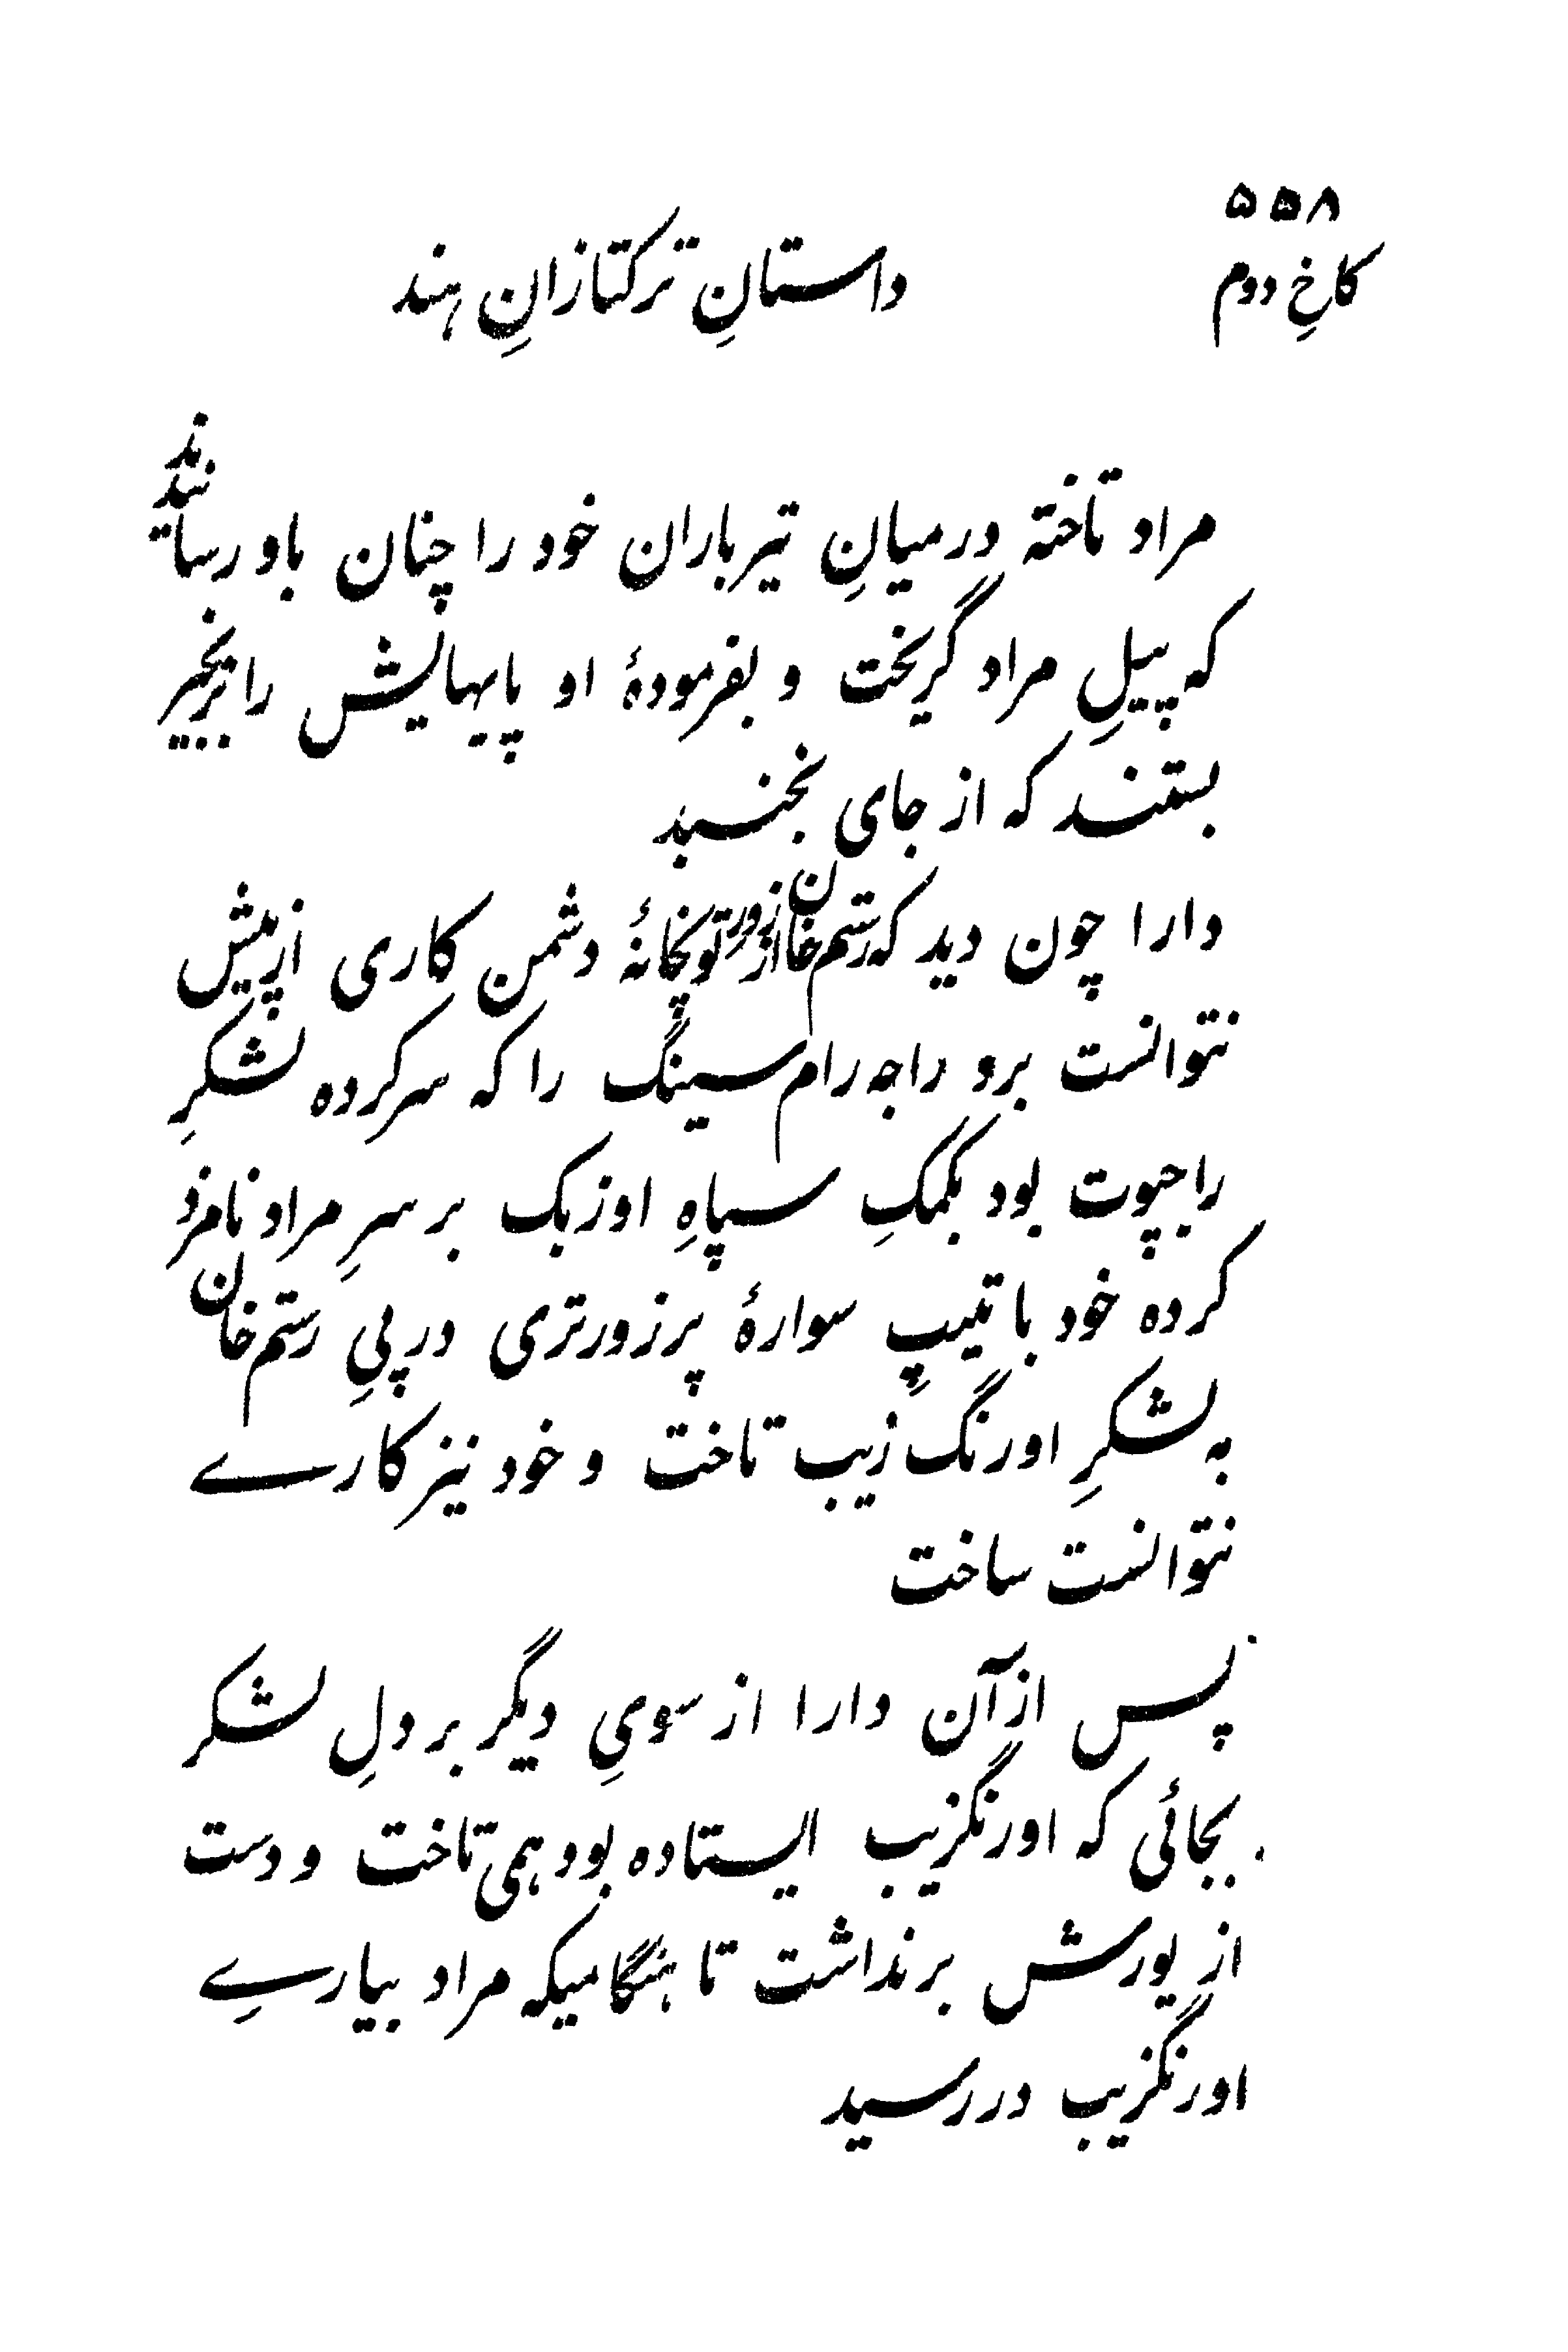 ۵۵۸
کاخِ دوم
داستانِ ترکتازانِ هند
مراد تاخته درمیانِ تیرباران خود را چنان باو رسانیدند
که پیلِ مراد گریخت و بفرمودۀ او پایهایش را بزنجیر
بستند که از جای نجنبد
دارا چون دید که رستم خان از زورِ توپخانۀ دشمن کاری از پیش
نتوانست برد راجه رام سینگ را که سرکرده لشکرِ
راجپوت بود بکمکِ سپاهِ اوزبک بر سرِ مراد نامزد
کرده خود با تیپِ سوارۀ پر زورتری در پیِ رستم خان
به لشکرِ اورنگ زیب تاخت و خود نیز کارے
نتوانست ساخت
پس از آن دارا از سویِ دیگر بر دلِ لشکر
بجائی که اورنگزیب ایستاده بود همی تاخت و دست
از یورش برنداشت تا هنگامیکه مراد بیارےِ
اورنگزیب در رسید